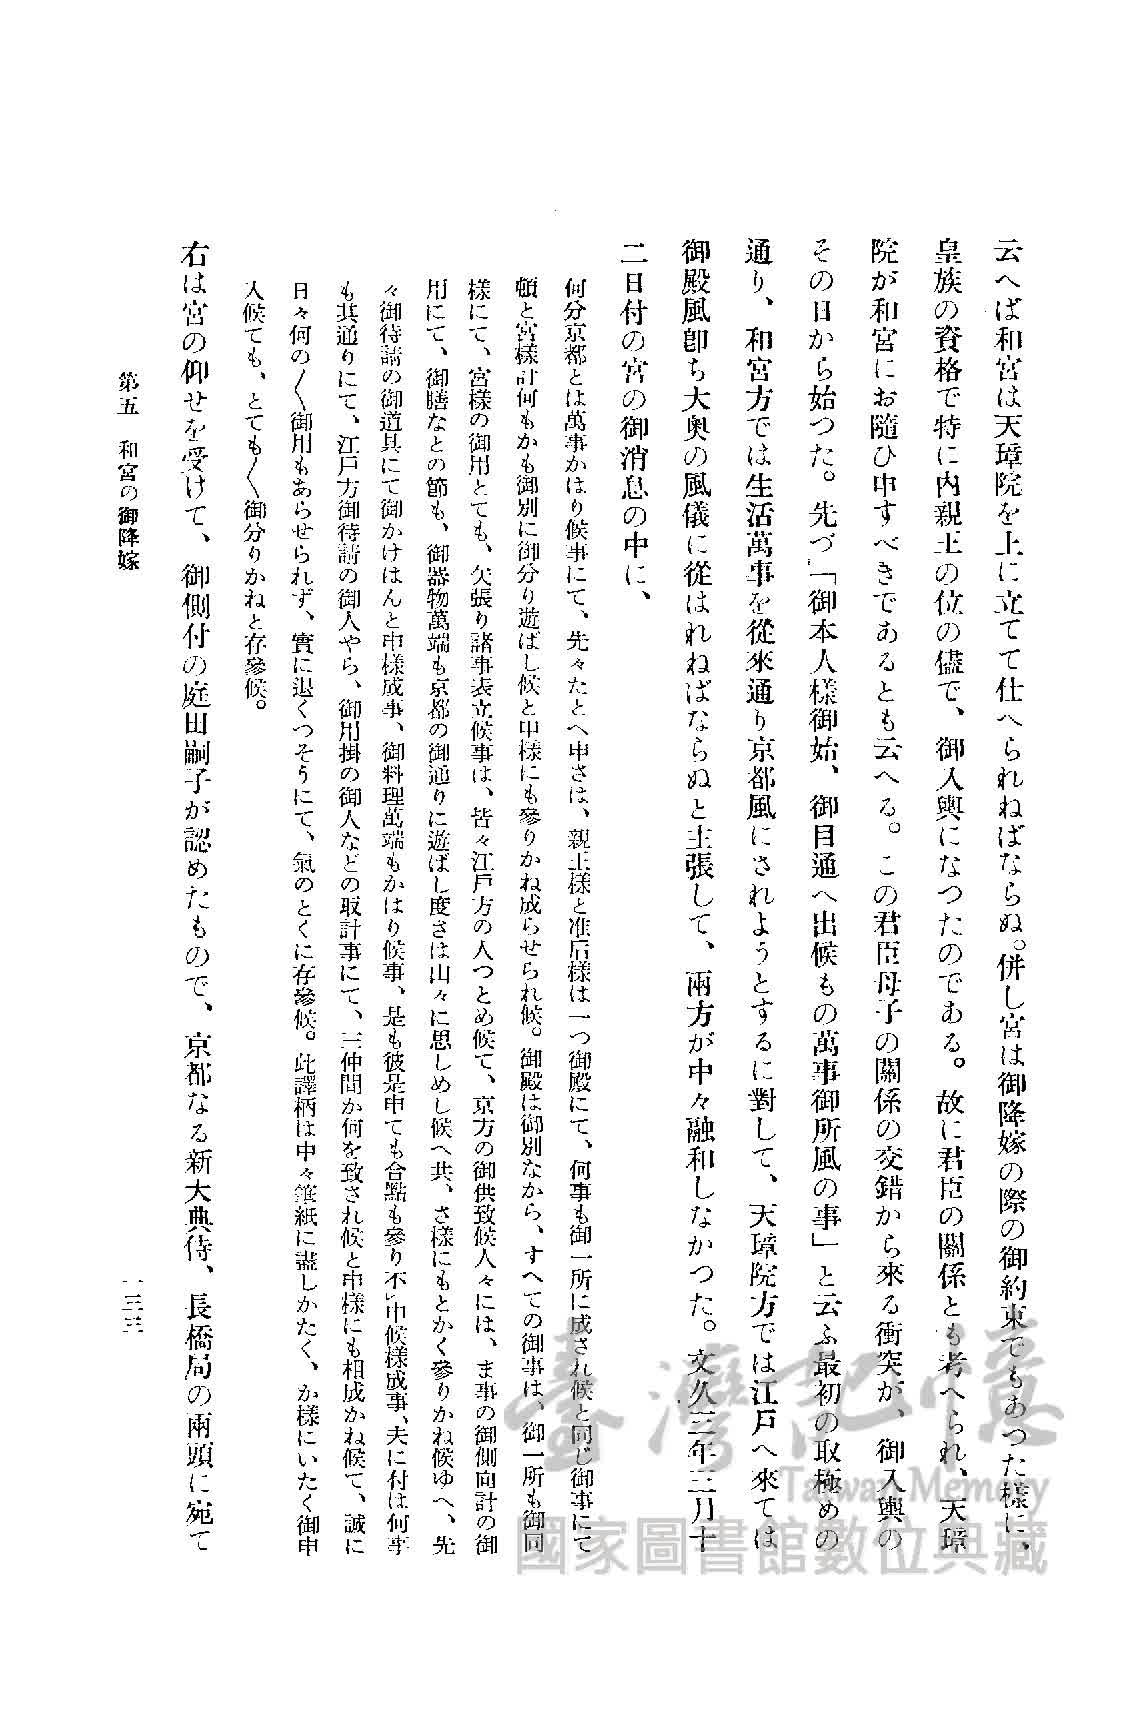 云へば和宮は天璋院を上に立てて仕へられねばならぬ。併し宮は御降嫁の際の御約束でもあつた様に、
皇族の資格で特に內親王の位の儘で、御入輿になつたのである。故に君臣の關係とも考へられ、天璋
院が和宮にお隨ひ申すべきであるとも云へる。この君臣母子の關係の交錯から來る衝突が、御入輿の
その日から始つた。先づ「御本人樣御始、御目通へ出候もの萬事御所風の事」と云ふ最初の取極めの
通り、和宮方では生活萬事を從來通り京都風にされようとするに對して、天璋院方では江戶へ來ては
御殿風卽ち大奧の風儀に從はれねばならぬと主張して、兩方が中々融和しなかつた。文久三年三月十
二日付の宮の御消息の中に、
何分京都とは萬事かはり候事にて、先々たとへ申さは、親王樣と准后樣は一つ御殿にて、何事も御一所に成され候と同じ御事にて
頓と宮樣計何もかも御別に御分り遊ばし候と申樣にも參りかね成らせられ候。御殿は御別なから、すへての御事は、御一所も御同
樣にて、宮樣の御用とても、矢張り諸事表立候事は、皆々江戶方の人つとめ候て、京方の御供致候人々には、ま事の御側向計の御
用にて、御膳なとの節も、御器物萬端も京都の御通りに遊ばし度さは山々に思しめし候へ共、さ樣にもとかく參りかね候ゆへ、先
々御待請の御道具にて御かけはんと申樣成事、御料理萬端もかはり候事、是も彼是申ても合點も參り不申候樣成事、夫に付は何事
も其通りにて、江戶方御待請の御人やら、御用掛の御人などの取計事にて、三仲間か何を致され候と申樣にも相成かね候て、誠に
日々何の〱御用もあらせられず、實に退くつそうにて、氣のとくに存參候。此譯柄は中々筆紙に盡しかたく、か樣にいたく御申
入候ても、とても〱御分りかねと存參候。
右は宮の仰せを受けて、御側付の庭田嗣子が認めたもので、京都なる新大典侍、長橋局の兩頭に宛て
第五 和宮の御降嫁
一三三
臺灣記憶
Taiwan Memory
國家圖書館數位典藏